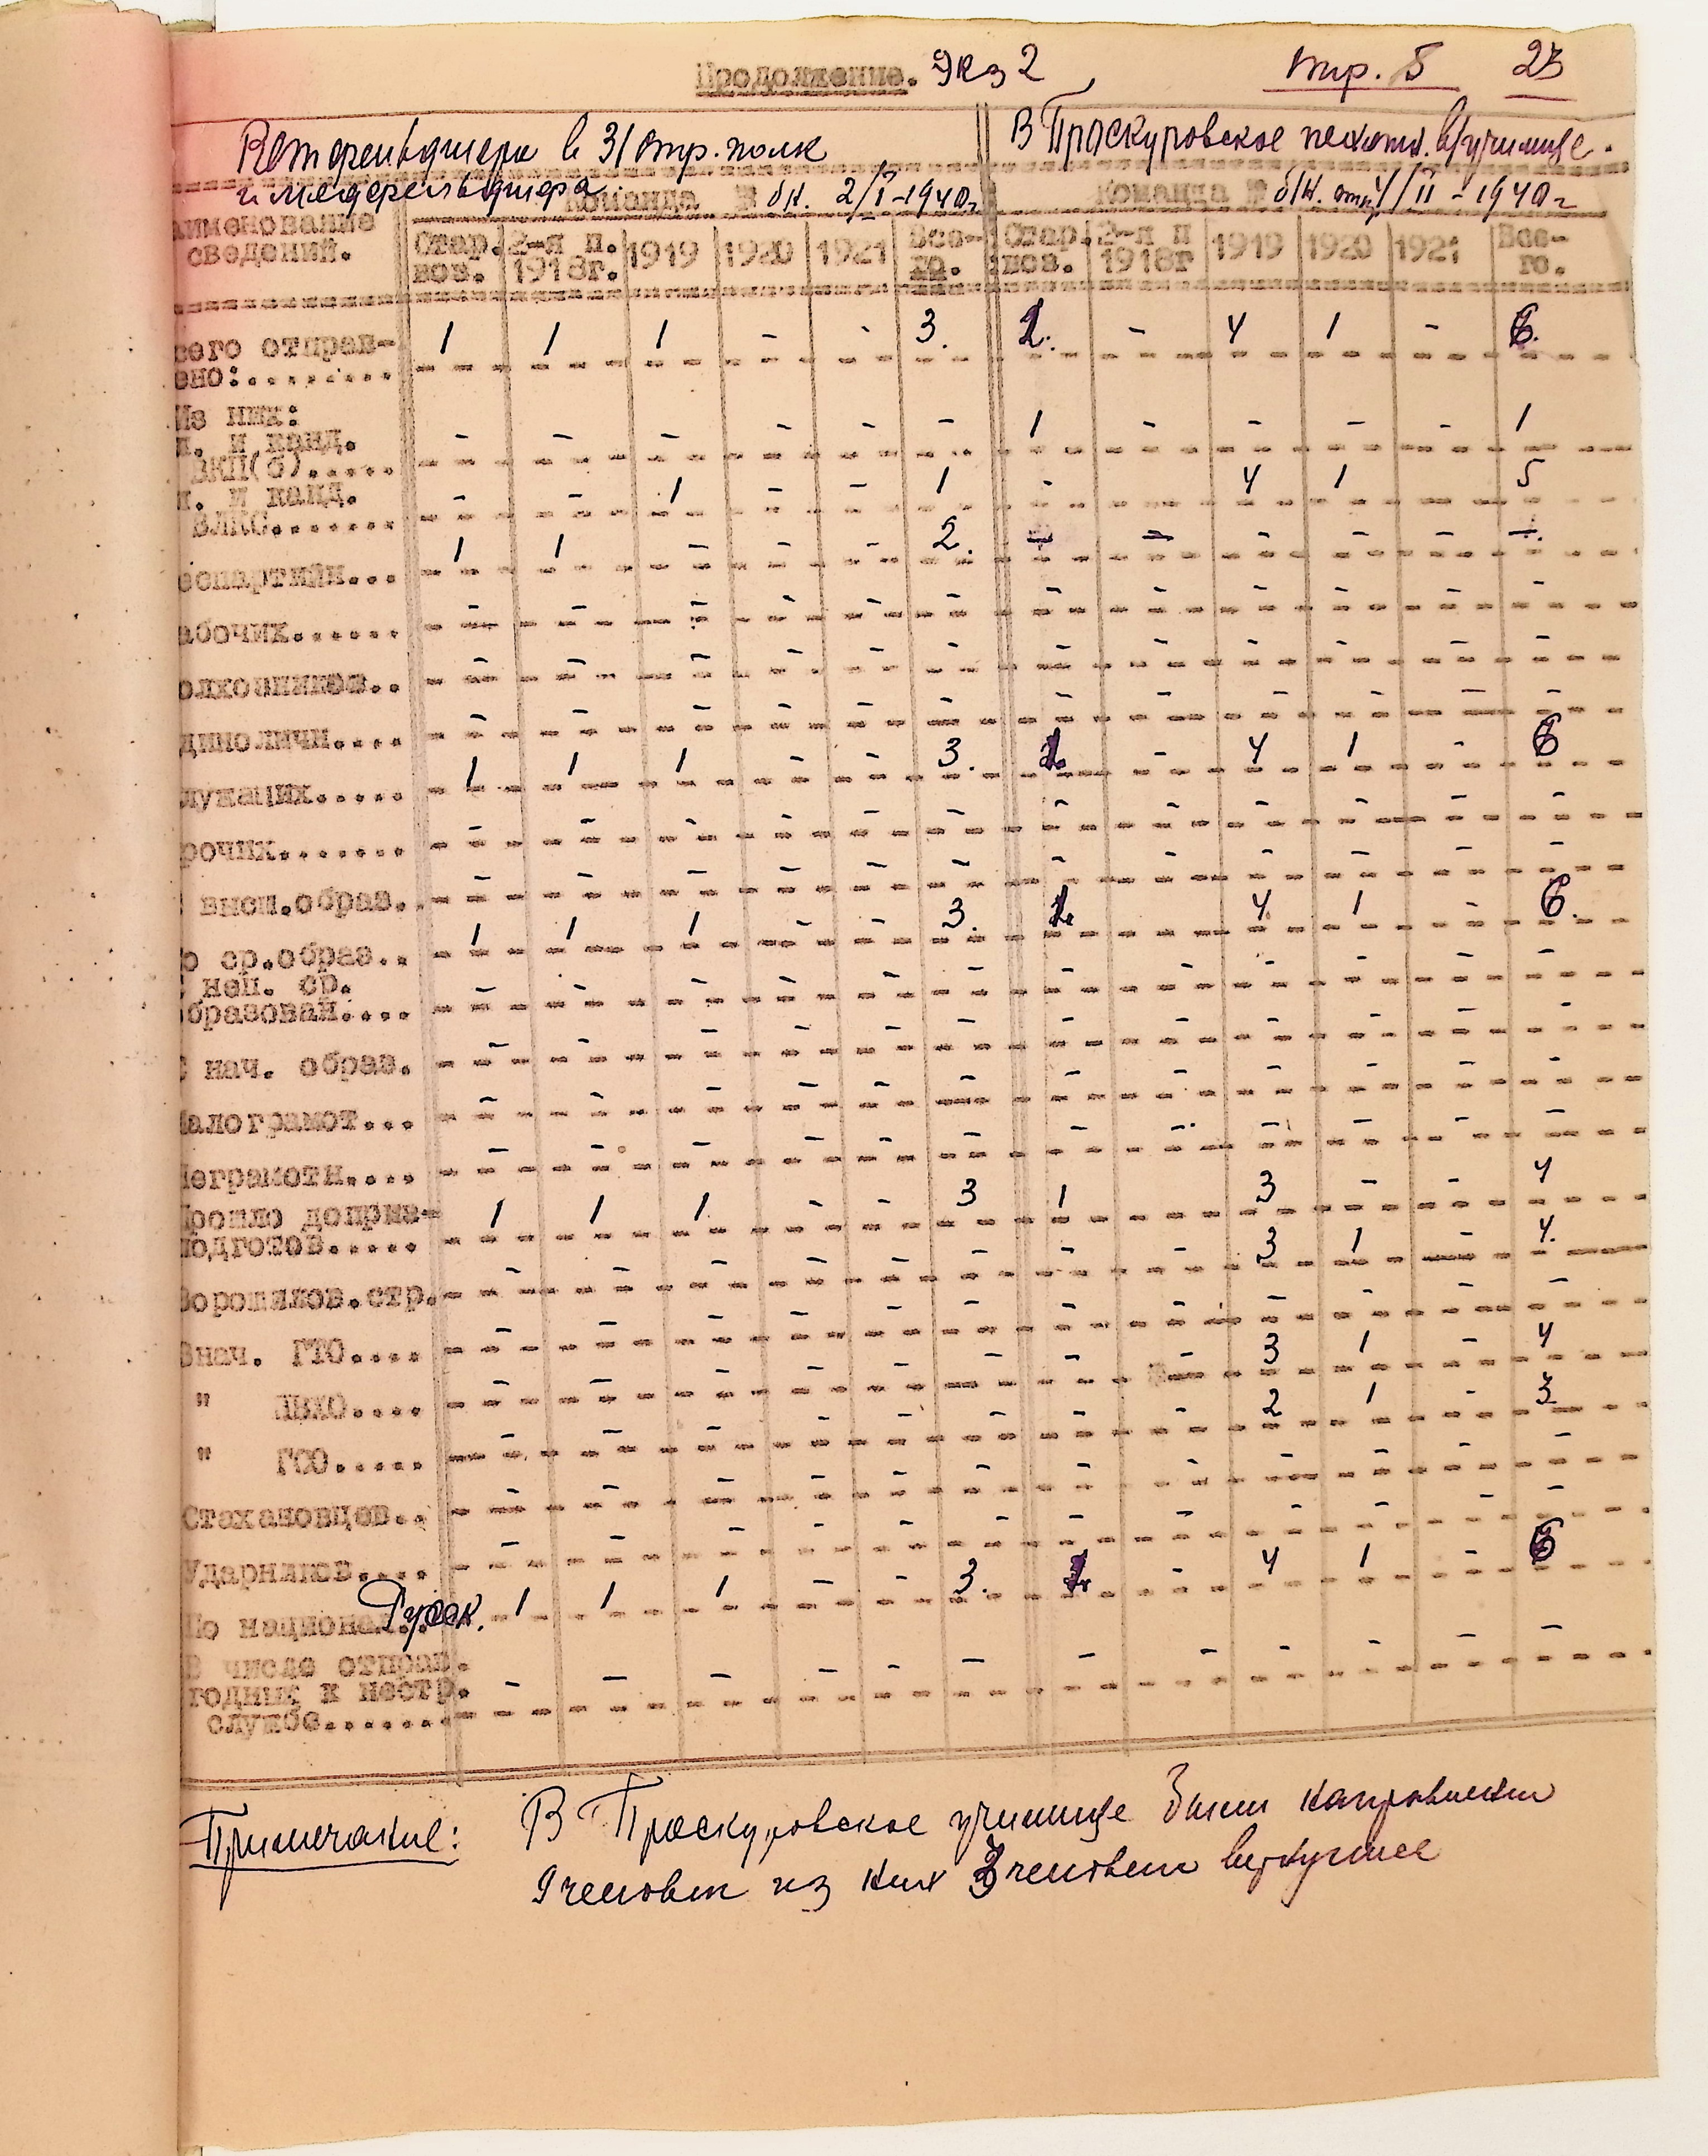 Продолжение. Экз 2 стр. 5 23
Ветфельдшера в 31 стр. полк
и медфельдшера
В Проскуровское пехотн. в/училище.
Команда № б/н. 2/II-1940г.
Команда № б/н. от 4/II-1940г
аименование
сведений.
Стар. воз. 2-я п. 1918г. 1919 1920 1921 Все-го. Стар. воз. 2-я п 1918г 1919 1920 1921 Все-го.
сего отправ-
ено:......... 1 1 1 - - 3. 1. - 4 1 - 6.
Из них:
л. и канд.
ВКП(б)..... - - - - - - 1 - - - - 1
л. и канд.
ВЛКС....... - - 1 - - 1 - 4 1 5
еспартийн... 1 1 - - - 2. - - - - - -.
абочих...... - - - - - - - - - - - -
олхозников.. - - - - - - - - - - - -
диноличн.... - - - - - - - - - - - -
лужащих..... 1 1 1 - - 3. 1. - 4 1 - 6
рочих....... - - - - - - - - - - - -
высш.образ.. - - - - - - - - - - - -
о ср.образ.. 1 1 1 - - 3. 1. 4 1 - 6.
неп. ср.
бразован.... - - - - - - - - - - - -
С нач. образ. - - - - - - - - - - - -
алограмот... - - - - - - - - - - - -
Неграмотн.... - - - - - - - - - - - -
Прошло допри-
подготов..... 1 1 1 - - 3 1 3 - - 4
Ворошилов.стр. - - - - - - - - 3 1 - 4.
Знач. ГТО.... - - - - - - - - - - - -
" ПВХО.... - - - - - - - - 3 1 - 4
" ГСО..... - - - - - - - - 2 1 - 3
Стахановцев.. - - - - - - - - - - - -
Ударников.... - - - - - - - - - - - -
По национал... 1 1 1 - - 3. 1. - 4 1 - 6
В числе отправ.
годных к нестр.
службе....... - - - - - - - - - - - -
Примечание: В Проскуровское училище были направлены
9 человек из них 3 человек вернулись